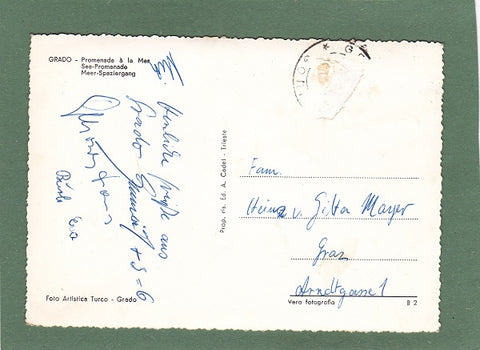 GRADO - Promenade à la Mer
Sea-Promenade
Meer-Spaziergang
Herzliche Grüße aus
Grado
+ 3 = 6
Prop. ris. Ed. A. Cadel - Trieste
Fam.
Heinz u. Gitta Mayer
Graz
Arndtgasse 1
Foto Artistica Turco - Grado
Vera fotografia
B 2